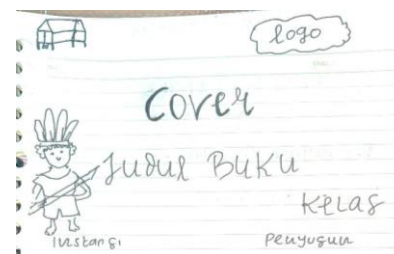 logo
Cover
Judul Buku
Kelas
Instansi
Penyusun